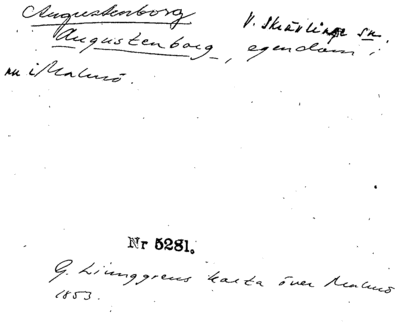 Augustenborg V. Skrävlinge sn.
Augustenborg, egendom i
nu i Malmö.
Nr 5281.
G. Ljunggrens karta över Malmö
1853.